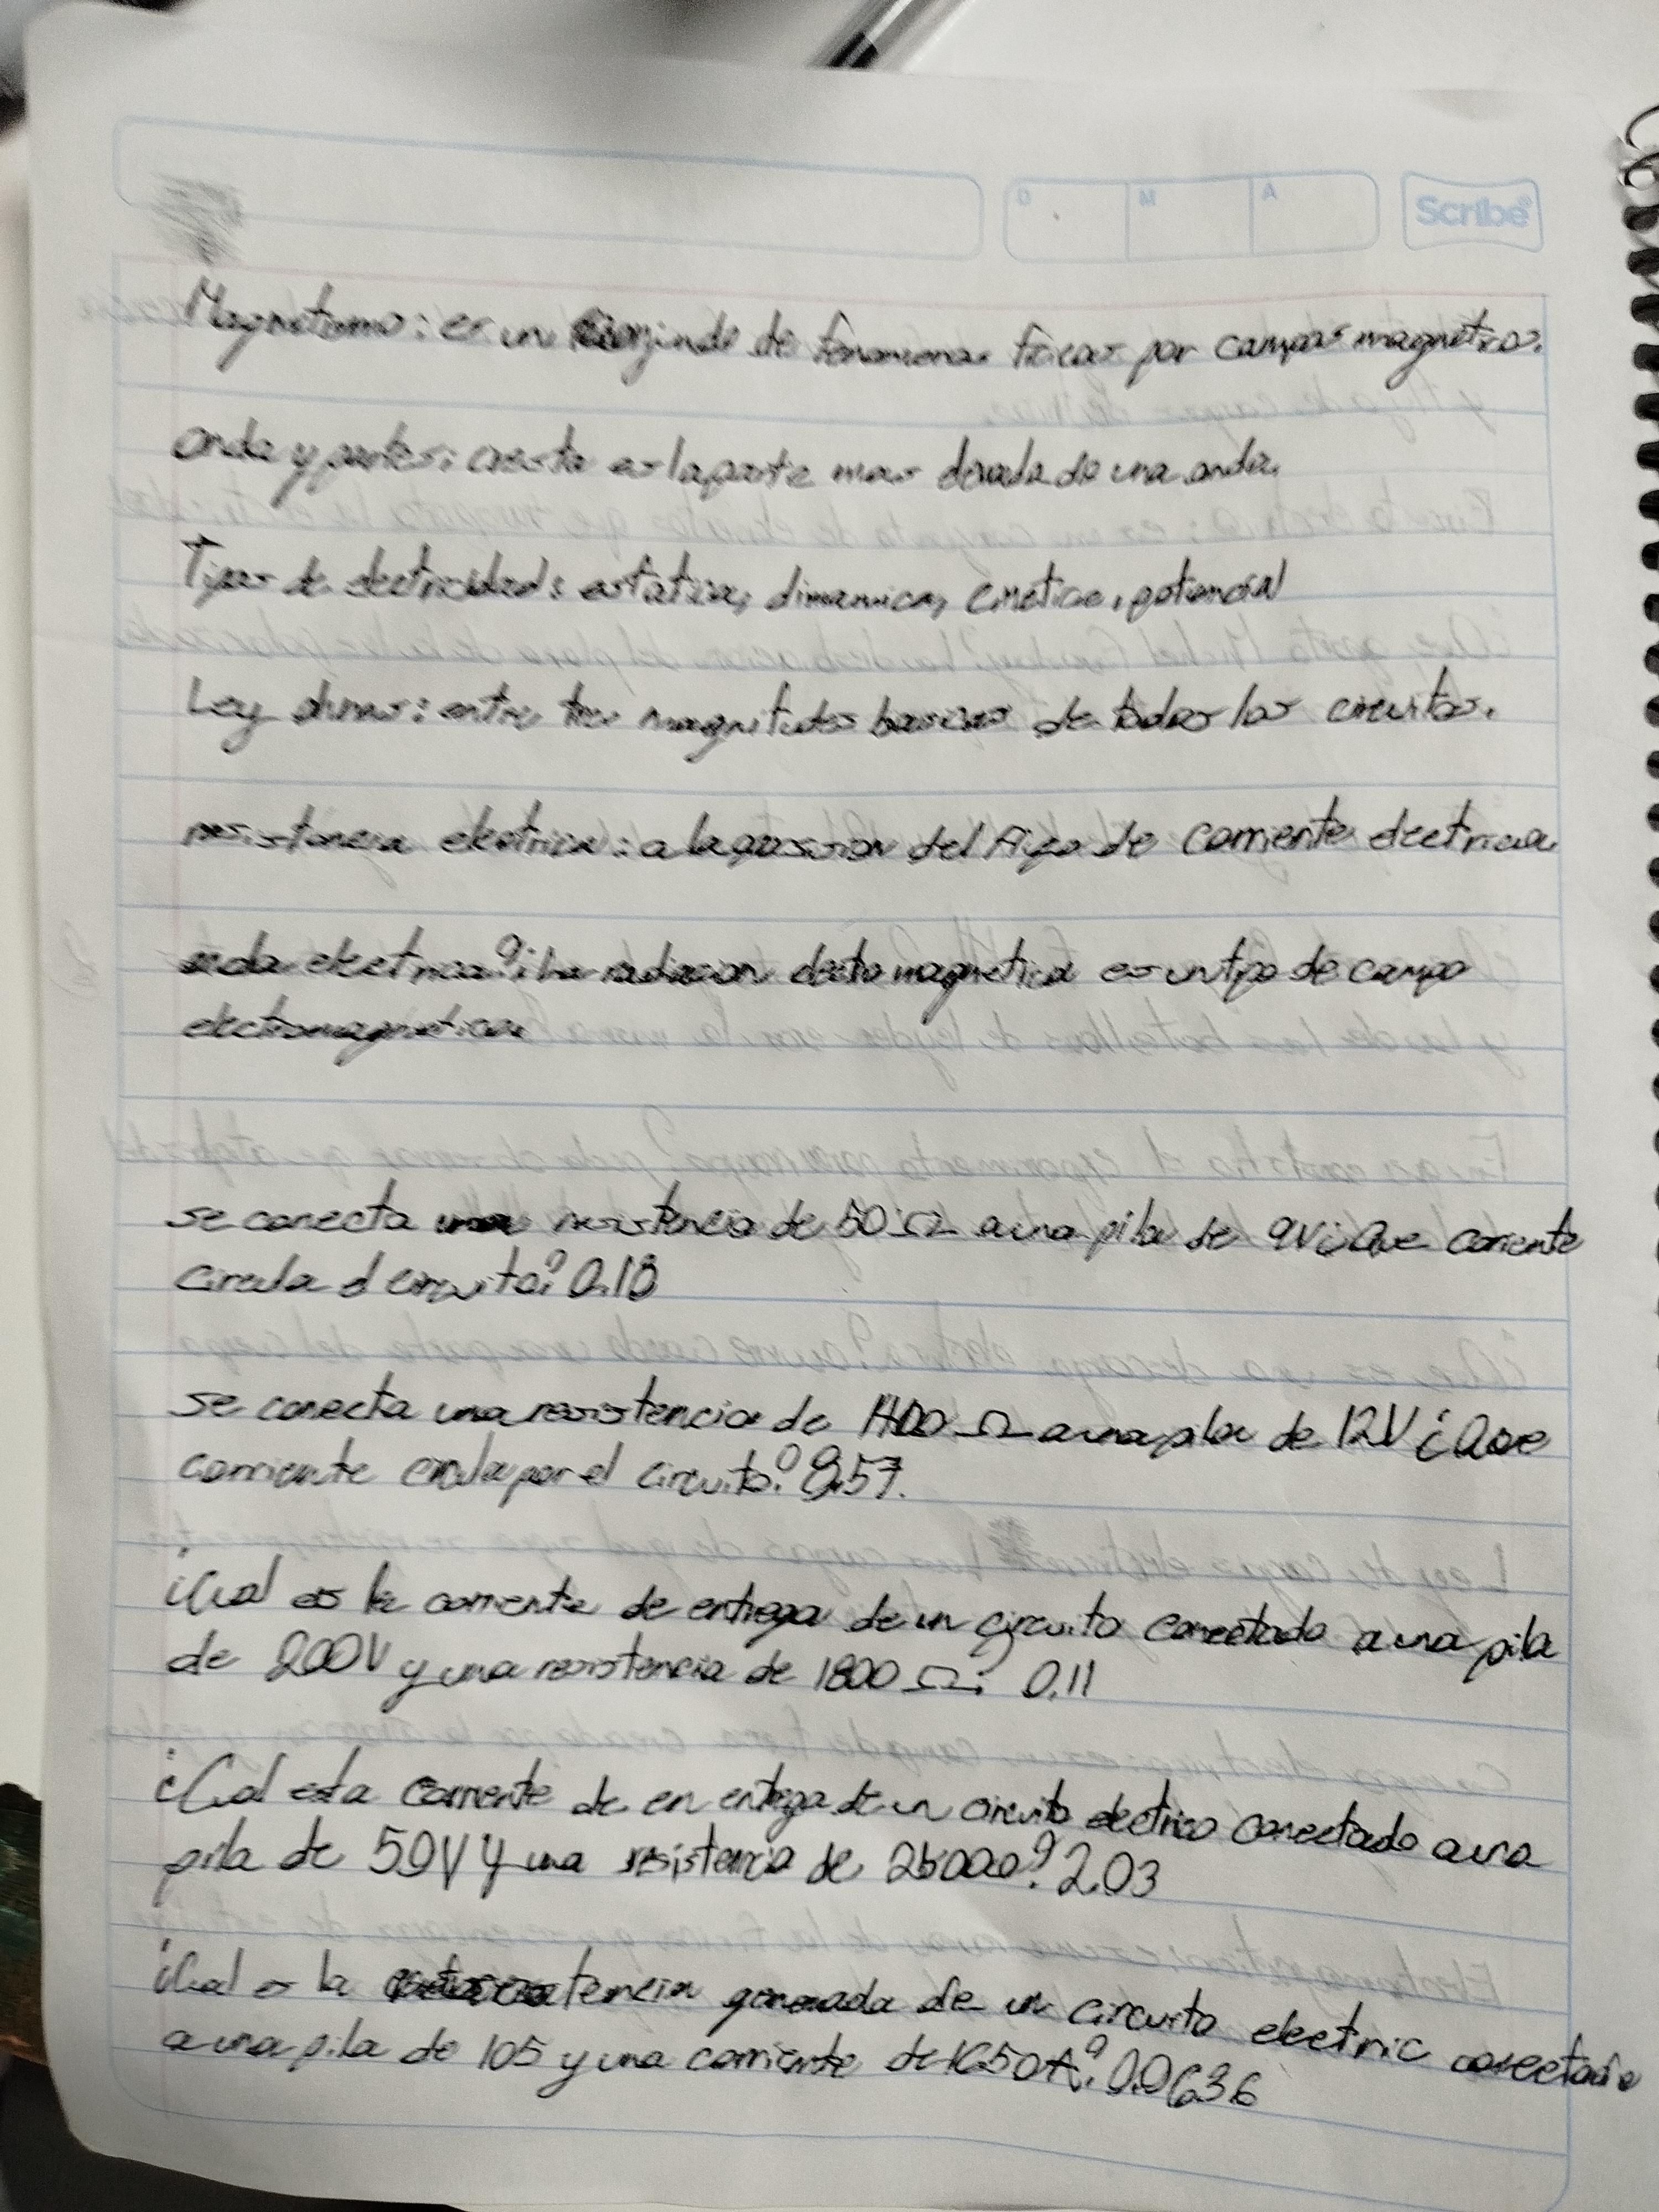 D M A Scribe
Magnetismo: es un conjunto de fenomenos fisicos por campos magnetros.
onda y partes: cresta es la parte mas elevada de una onda.
Tipos de electricidad: estatica, dinamica, cinetica, potencial
Ley ohms: entre tres magnitudes basicas de todos los circuitos.
resistencia electrica: a la oposicion del flujo de corriente electrica
onda electrica?: la radiacion electromagnetica es un tipo de campo
electromagnetica
se conecta una resistencia de 50 Ω a una pila de 9V ¿Que corriente
circula el circuito? 0.18
se conecta una resistencia de 1400 Ω a una pila de 12V ¿Que
corriente circula por el circuito? 8.57.
¿Cual es la corriente de entrega de un circuito conectado a una pila
de 200V y una resistencia de 1800 Ω: 0.11
¿Cual esta corriente de en entrega de un circuito electrico conectado a una
pila de 50V y una resistencia de ? 2.03
¿Cual es la generada de un circuito electric conectado
a una pila de 105 y una corriente de 1650A? 0.0636